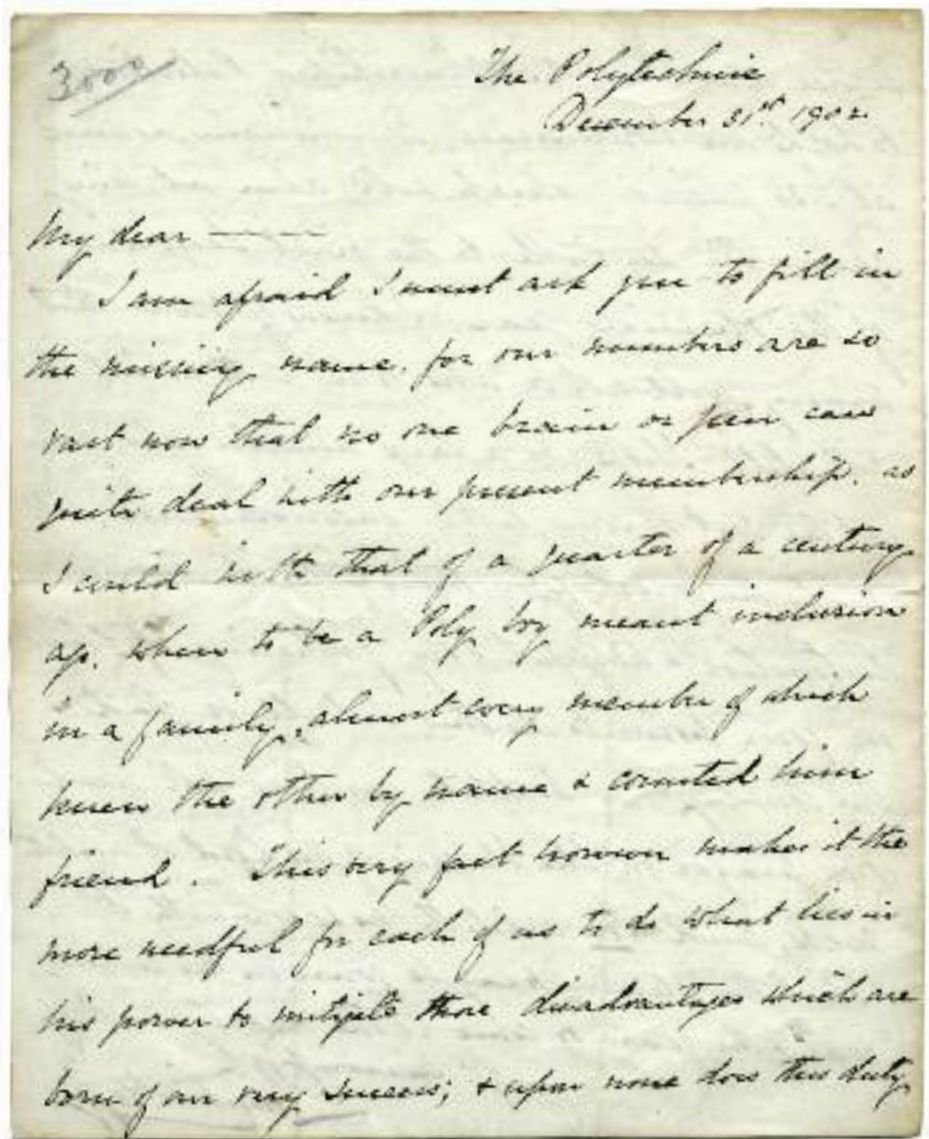 3000
The Polytechnic
December 31st 1902
My dear ————
I am afraid I must ask you to fill in
the missing name. for our numbers are so
vast now that no one brain or pen can
quite deal with our present membership. as
I could with that of a quarter of a century
ago. when to be a Poly boy meant inclusion
in a family, almost every member of which
knew the other by name & counted him
friend. This very fact however makes it the
more needful for each of us to do what lies in
his power to mitigate those disadvantages which are
born of our very success; & upon none does this duty